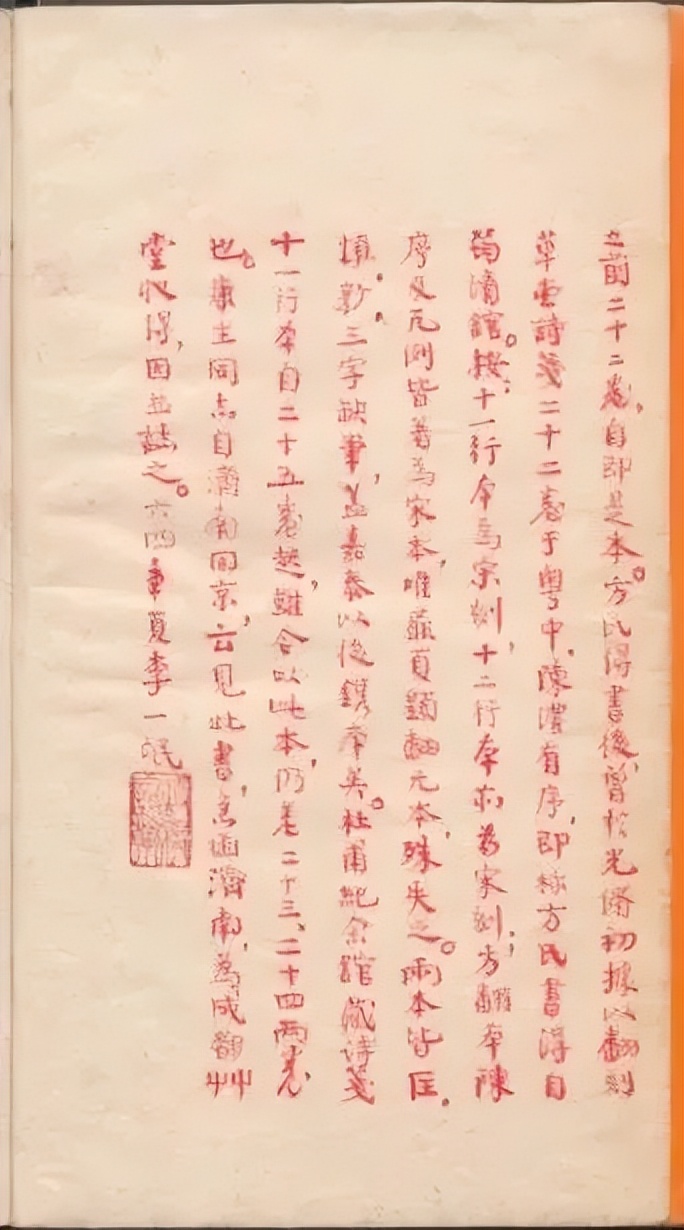 之前二十二卷，自即是本。方氏得書後，曾於光緒初據以翻刻
草堂詩箋二十二卷于粵中，陳澧有序，即稱方氏書得自
筠清館。按：十一行本為宋刻，十二行本亦為宋刻；方翻本陳
序及凡例皆著為宋本，唯扉頁題翻元本，殊失之。兩本皆匡、
慎、敦三字缺筆，蓋嘉泰以後鐫本矣。杜甫紀念館藏詩箋
十一行本自二十五卷起，雖合以此本，仍差二十三、二十四兩卷
也。康生同志自濟南回京，云見此書，急函濟南，為成都草
堂收得，因並誌之。六四年夏李一氓